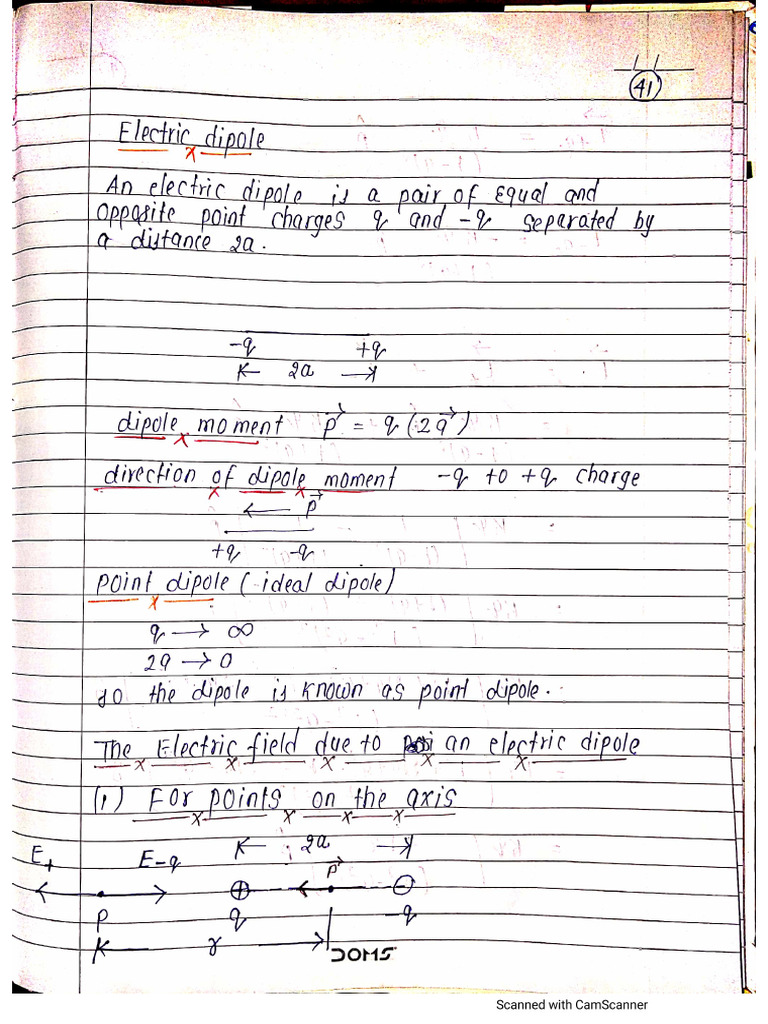 41
Electric dipole
An electric dipole is a pair of Equal and
opposite point charges q and -q separated by
a distance 2a.
-q +q
2a
dipole moment p⃗ = q (2a⃗)
direction of dipole moment -q to +q charge
p⃗
+q -q
point dipole (ideal dipole)
q → ∞
2a → 0
so the dipole is known as point dipole.
The Electric field due to an electric dipole
(1) For points on the axis
2a
E+ E-q p⃗
⊕ ⊖
P q -q
r
DOMS
Scanned with CamScanner